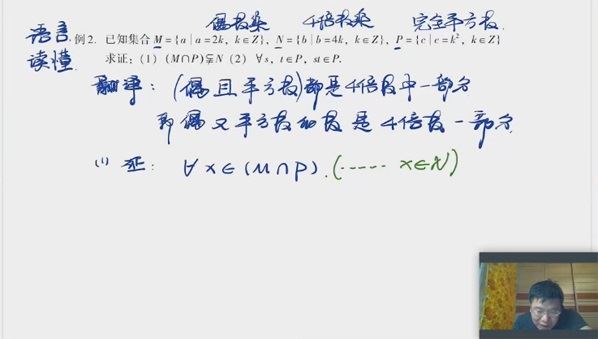 偶数集 4倍数集 完全平方数
语言
例2. 已知集合M={a|a=2k, k∈Z}, N={b|b=4k, k∈Z}, P={c|c=k², k∈Z}
读懂
求证:(1) (M∩P)⫋N (2) ∀s, t∈P, st∈P.
翻译: (偶且平方数)都是4倍数中一部分
即偶又平方数的数是4倍数一部分.
(1) 证: ∀x∈(M∩P).(----- x∈N)